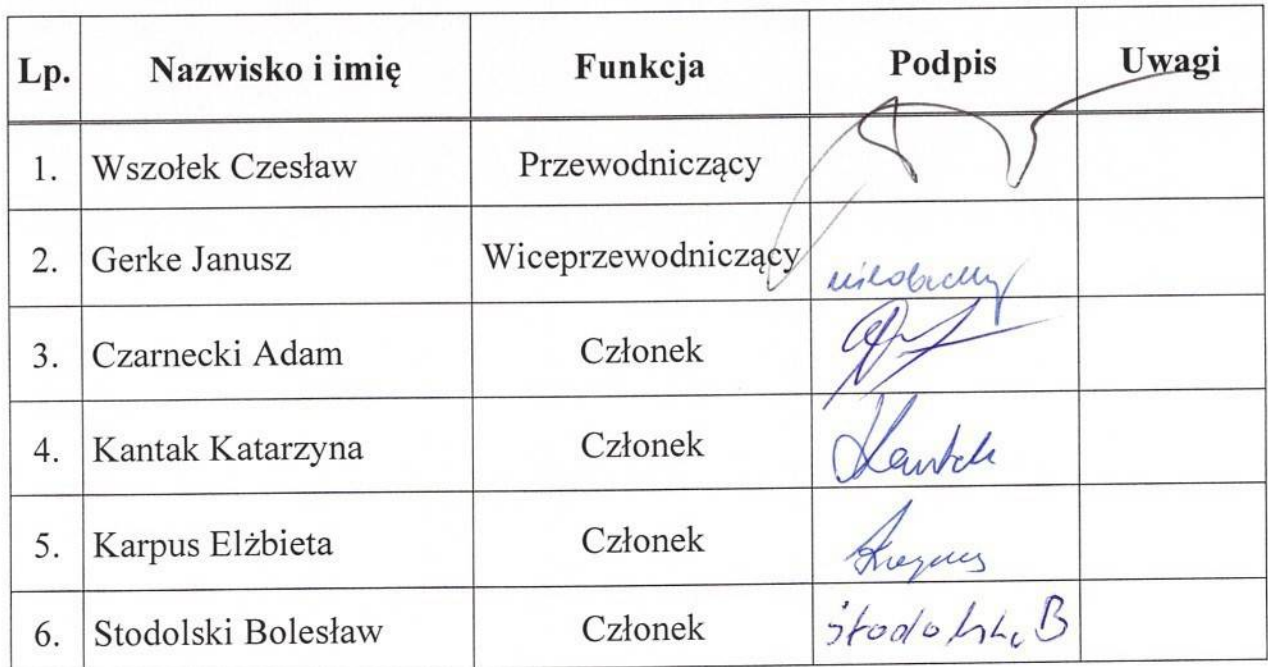 Lp. Nazwisko i imię Funkcja Podpis Uwagi
1. Wszołek Czesław Przewodniczący
2. Gerke Janusz Wiceprzewodniczący nieobecny
3. Czarnecki Adam Członek
4. Kantak Katarzyna Członek Kantak
5. Karpus Elżbieta Członek
6. Stodolski Bolesław Członek Stodolski B